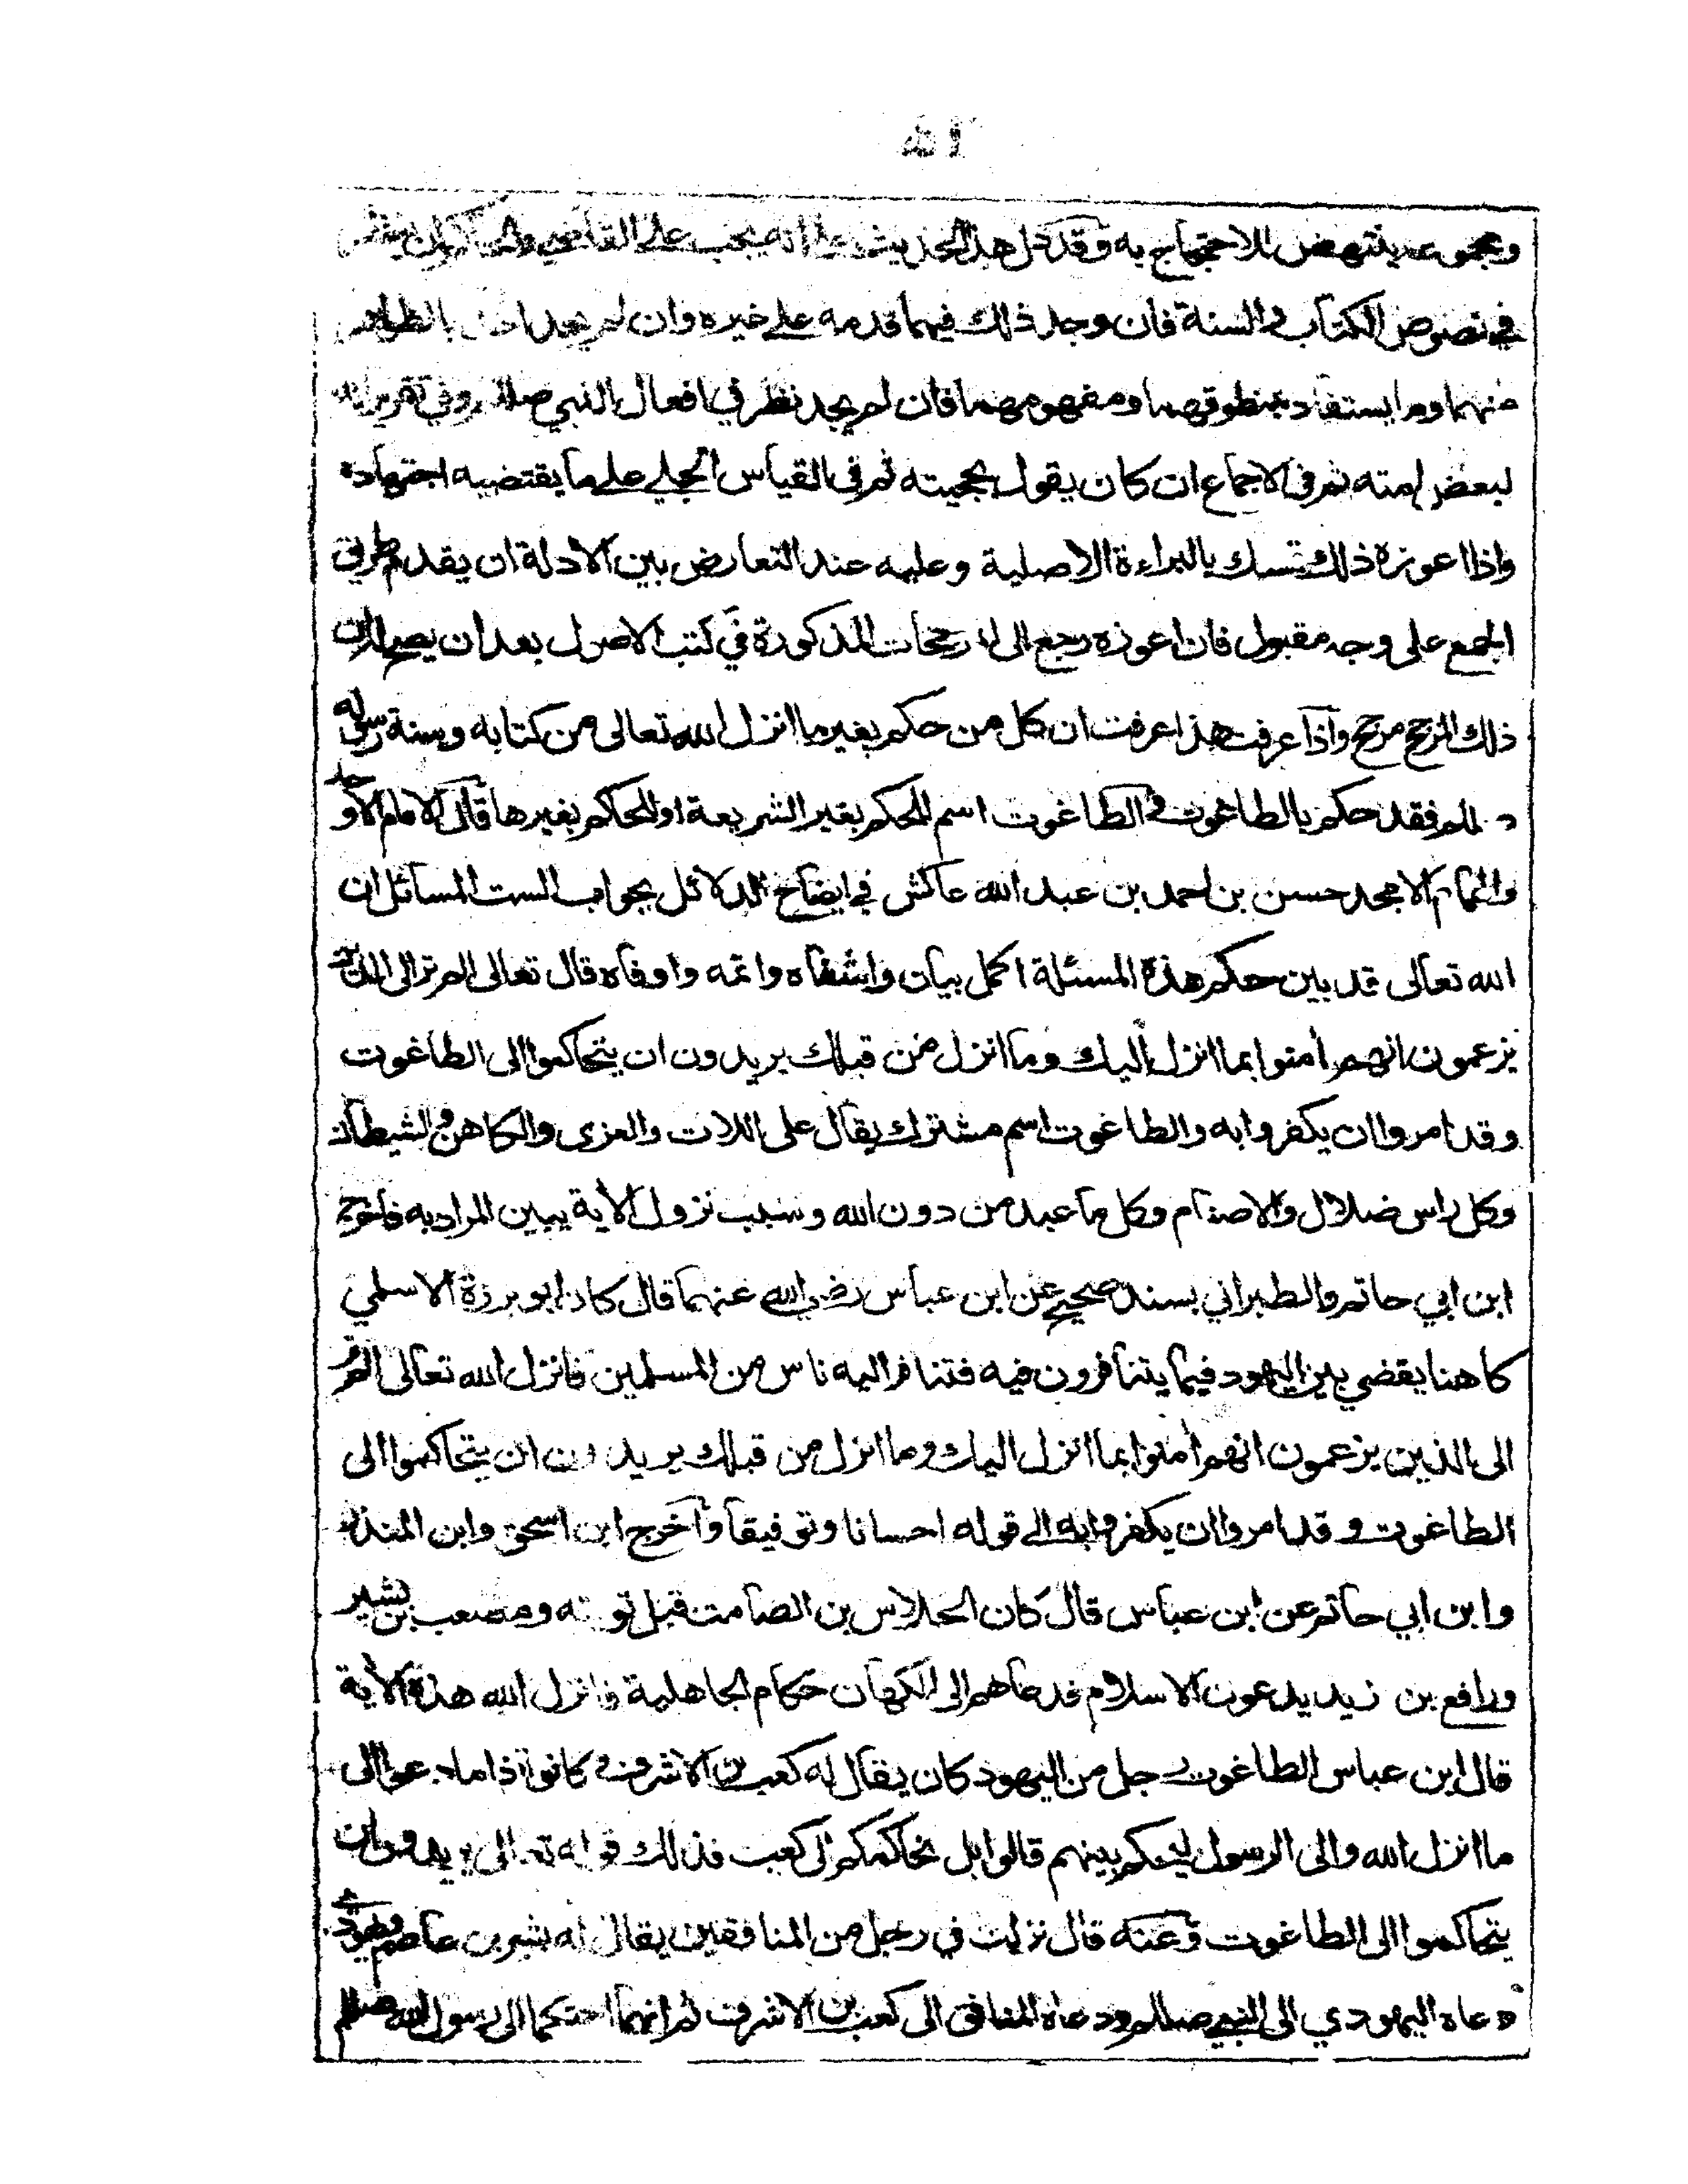 ومجموعه ينتهض للاحتجاج به وقد دل هذا الحديث على انه يجب على القاضي
في نصوص الكتاب والسنة فان وجد ذلك فيهما قدمه على غيره وان لم يجد اخذ بالظواهر
منهما وما يستفاد بمنطوقهما ومفهومهما فان لم يجد نظر في افعال النبي صللم وفي تقريراته
لبعض امته ثم في الاجماع ان كان يقول بحجيته ثم في القياس الجلي على ما يقتضيه اجتهاده
واذا اعوزه ذلك تمسك بالبراءة الاصلية وعليه عند التعارض بين الادلة ان يقدم طريق
الجمع على وجه مقبول فان اعوزه رجع الى المرجحات المذكورة في كتب الاصول بعد ان يصح له ان
ذلك المرجح مرجح واذا عرفت هذا عرفت ان كل من حكم بغير ما انزل الله تعالى من كتابه وسنة رسوله
صللم فقد حكم بالطاغوت والطاغوت اسم للحكم بغير الشريعة او للحاكم بغيرها قال الامام الاوحد
والهمام الامجد حسن بن احمد بن عبد الله عاكش في ايضاح الدلائل بجواب الست المسائل ان
الله تعالى قد بين حكم هذه المسئلة اكمل بيان واشفاه واتمه واوفاه قال تعالى الم تر الى الذين
يزعمون انهم امنوا بما انزل اليك وما انزل من قبلك يريدون ان يتحاكموا الى الطاغوت
وقد امروا ان يكفروا به والطاغوت اسم مشترك يقال على اللات والعزى والكاهن والشيطان
وكل راس ضلال والاصنام وكل ما عبد من دون الله وسبب نزول الأية يبين المراد به فاخرج
ابن ابي حاتم والطبراني بسند صحيح عن ابن عباس رضي الله عنهما قال كان ابو برزة الاسلمي
كاهنا يقضي بين اليهود فيما يتنافرون فيه فتنافر اليه ناس من المسلمين فانزل الله تعالى الم تر
الى الذين يزعمون انهم امنوا بما انزل اليك وما انزل من قبلك يريدون ان يتحاكموا الى
الطاغوت وقد امروا ان يكفروا به الى قوله احسانا وتوفيقا وأخرج ابن اسحق وابن المنذر
وابن ابي حاتم عن ابن عباس قال كان الجلاس بن الصامت قبل توبته ومصعب بن بشير
ورافع بن زيد يدعون الاسلام فدعاهم الى الكهان حكام الجاهلية فانزل الله هذه الأية
قال ابن عباس الطاغوت رجل من اليهود كان يقال له كعب بن الاشرف وكانوا اذا ما دعوا الى
ما انزل الله والى الرسول ليحكم بينهم قالوا بل نحاكمكم الى كعب فذلك قوله تعالى يريدون ان
يتحاكموا الى الطاغوت وعنه قال نزلت في رجل من المنافقين يقال له بشر بن عاصم ويهودي
دعاه اليهودي الى النبي صللم ودعاه المنافق الى كعب بن الاشرف ثم انهما احتكما الى رسول الله صللم